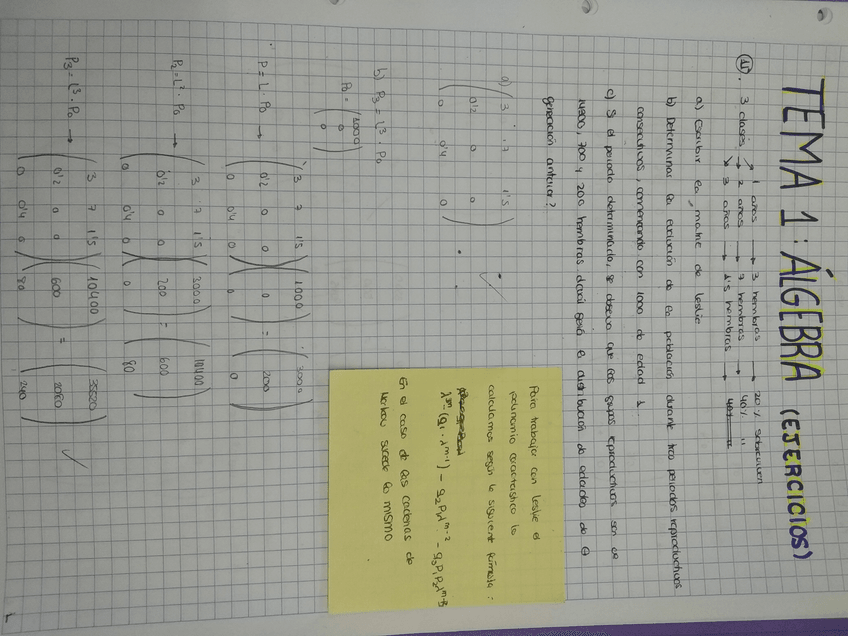 TEMA 1: ÁLGEBRA (EJERCICIOS)
11. 3 clases → 1 años → 3 hembras → 20% sobreviven
→ 2 años → 7 hembras → 40% "
→ 3 años → 1'5 hembras →
a) Escribir la matriz de Leslie
b) Determinar la evolución de la población durante tres periodos reproductivos
consecutivos, comenzando con 1000 de edad 1.
c) Si el periodo determinado, se observa que los grupos reproductivos son de
14800, 700 y 200 hembras ¿cuál será la distribución de edades de la
generación anterior?
a) ( 3 7 1'5
0'2 0 0
0 0'4 0 )
b) P3 = L³ · P0
P0 = ( 1000
0
0 )
P = L · P0 → ( 3 7 1'5 ) ( 1000 ) = ( 3000 )
( 0'2 0 0 ) ( 0 ) ( 200 )
( 0 0'4 0 ) ( 0 ) ( 0 )
P2 = L² · P0 → ( 3 7 1'5 ) ( 3000 ) = ( 10400 )
( 0'2 0 0 ) ( 200 ) ( 600 )
( 0 0'4 0 ) ( 0 ) ( 80 )
P3 = L³ · P0 → ( 3 7 1'5 ) ( 10400 ) = ( 35520 )
( 0'2 0 0 ) ( 600 ) ( 2080 )
( 0 0'4 0 ) ( 80 ) ( 240 )
Para trabajar con Leslie el
polinomio característico lo
calculamos según la siguiente fórmula:
λᵐ - (g₁ · λᵐ⁻¹) - g₂P₁λᵐ⁻² - g₃P₁P₂λᵐ⁻³
En el caso de las cadenas de
Markov sucede lo mismo